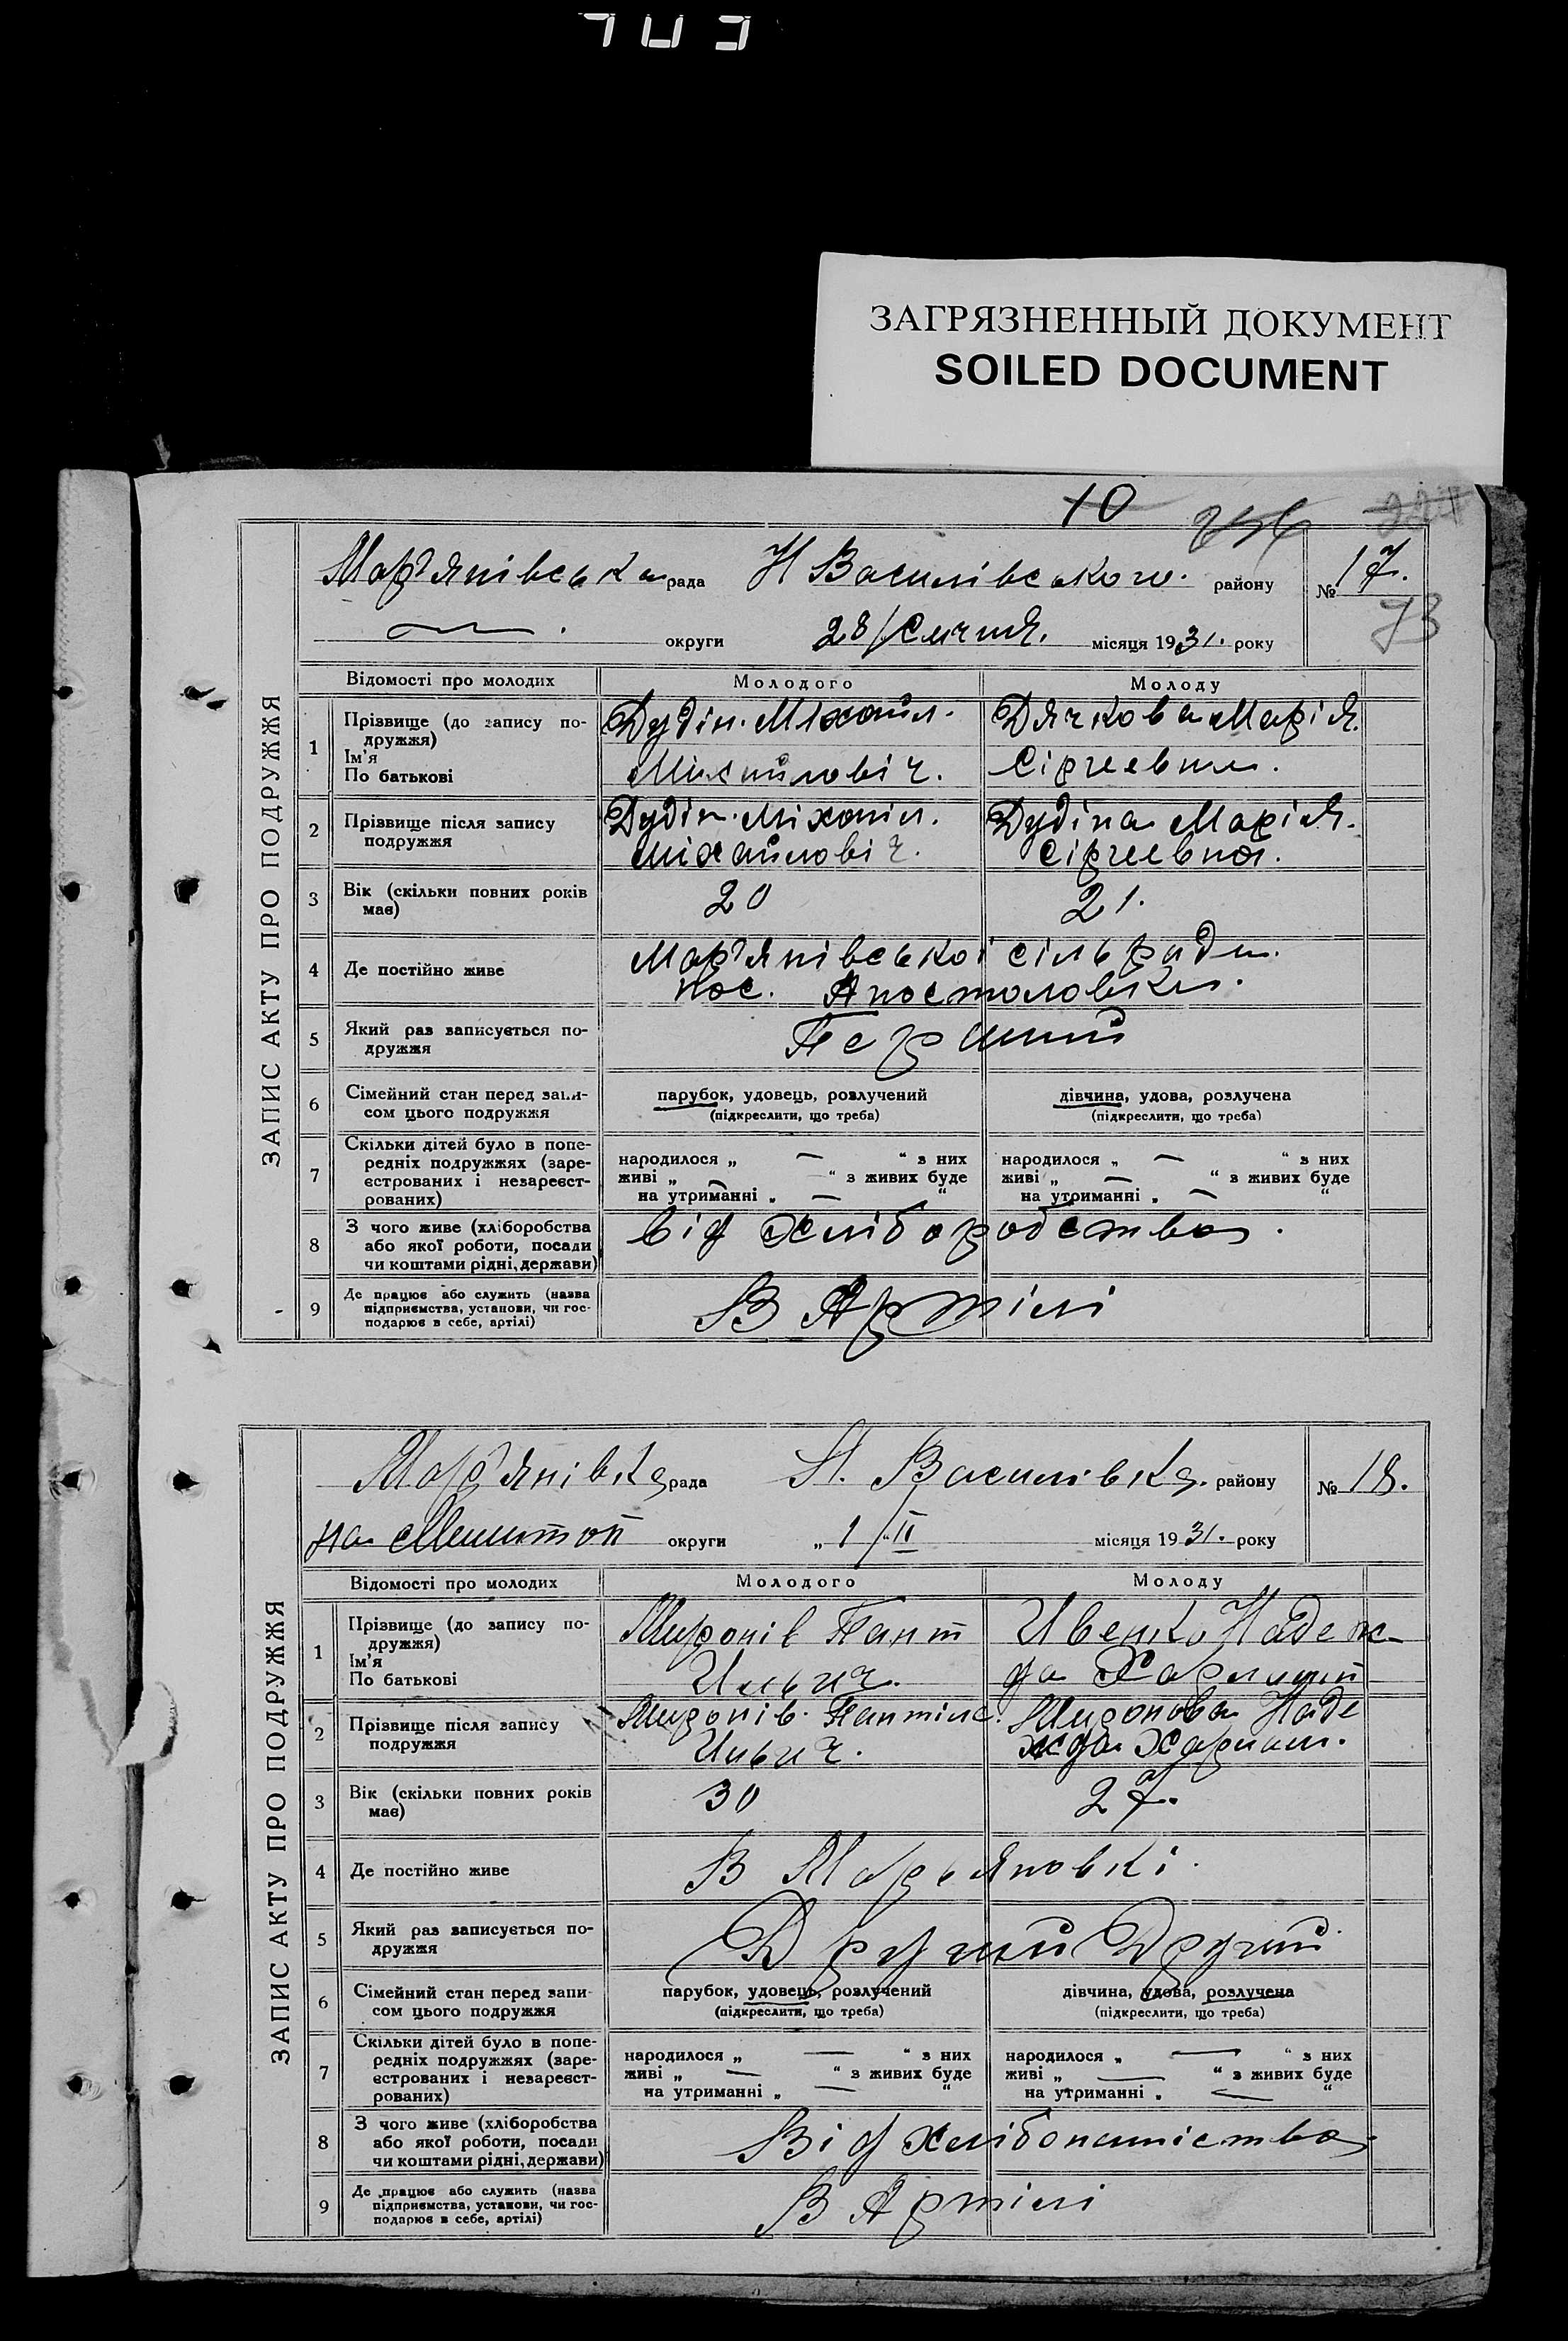 ЗАГРЯЗНЕННЫЙ ДОКУМЕНТ
SOILED DOCUMENT
10
ЗАПИС АКТУ ПРО ПОДРУЖЖЯ
Мар'янівська рада Н Василівського. району № 17.
73
округи 28/Січня. місяця 1931. року
Відомості про молодих Молодого Молоду
1 Прізвище (до запису по-
дружжя)
Ім'я
По батькові
Дудін. Міхайл.
Міхайловіч.
Дячкова Марія.
Сіргеевна.
2 Прізвище після запису
подружжя
Дудін. Міхаіл.
Міхайловіч.
Дудіна Марія.
Сіргеевна.
3 Вік (скільки повних років
має)
20 21.
4 Де постійно живе
Мар'янівської сільради.
пос. Апостоловка.
5 Який раз записується по-
дружжя
Перший
6 Сімейний стан перед запи-
сом цього подружжя
парубок, удовець, розлучений
(підкреслити, що треба)
дівчина, удова, розлучена
(підкреслити, що треба)
7 Скільки дітей було в попе-
редніх подружжях (заре-
єстрованих і незареєст-
рованих)
народилося „ — “ з них
живі „ — “ з живих буде
на утриманні „ — “
народилося „ — “ з них
живі „ — “ з живих буде
на утриманні „ — “
8 З чого живе (хліборобства
або якої роботи, посади
чи коштами рідні, держави)
від хліборобства.
9 Де працює або служить (назва
підприємства, установи, чи гос-
подарює в себе, артілі)
В Артілі
ЗАПИС АКТУ ПРО ПОДРУЖЖЯ
Мар'янівка рада Н. Василівка. району № 18.
на Мелитоп округи „ 1 /“ II місяця 1931. року
Відомості про молодих Молодого Молоду
1 Прізвище (до запису по-
дружжя)
Ім'я
По батькові
Миронів Пант
Ильич.
Ивенко Надеж-
да
2 Прізвище після запису
подружжя
Миронів. Пантіле.
Ильич.
Миронова Наде
жда
3 Вік (скільки повних років
має)
30 27.
4 Де постійно живе
В Марьяновкі.
5 Який раз записується по-
дружжя
Другий Другий
6 Сімейний стан перед запи-
сом цього подружжя
парубок, удовець, розлучений
(підкреслити, що треба)
дівчина, удова, розлучена
(підкреслити, що треба)
7 Скільки дітей було в попе-
редніх подружжях (заре-
єстрованих і незареєст-
рованих)
народилося „ — “ з них
живі „ — “ з живих буде
на утриманні „ — “
народилося „ — “ з них
живі „ — “ з живих буде
на утриманні „ — “
8 З чого живе (хліборобства
або якої роботи, посади
чи коштами рідні, держави)
Від
9 Де працює або служить (назва
підприємства, установи, чи гос-
подарює в себе, артілі)
В Артілі